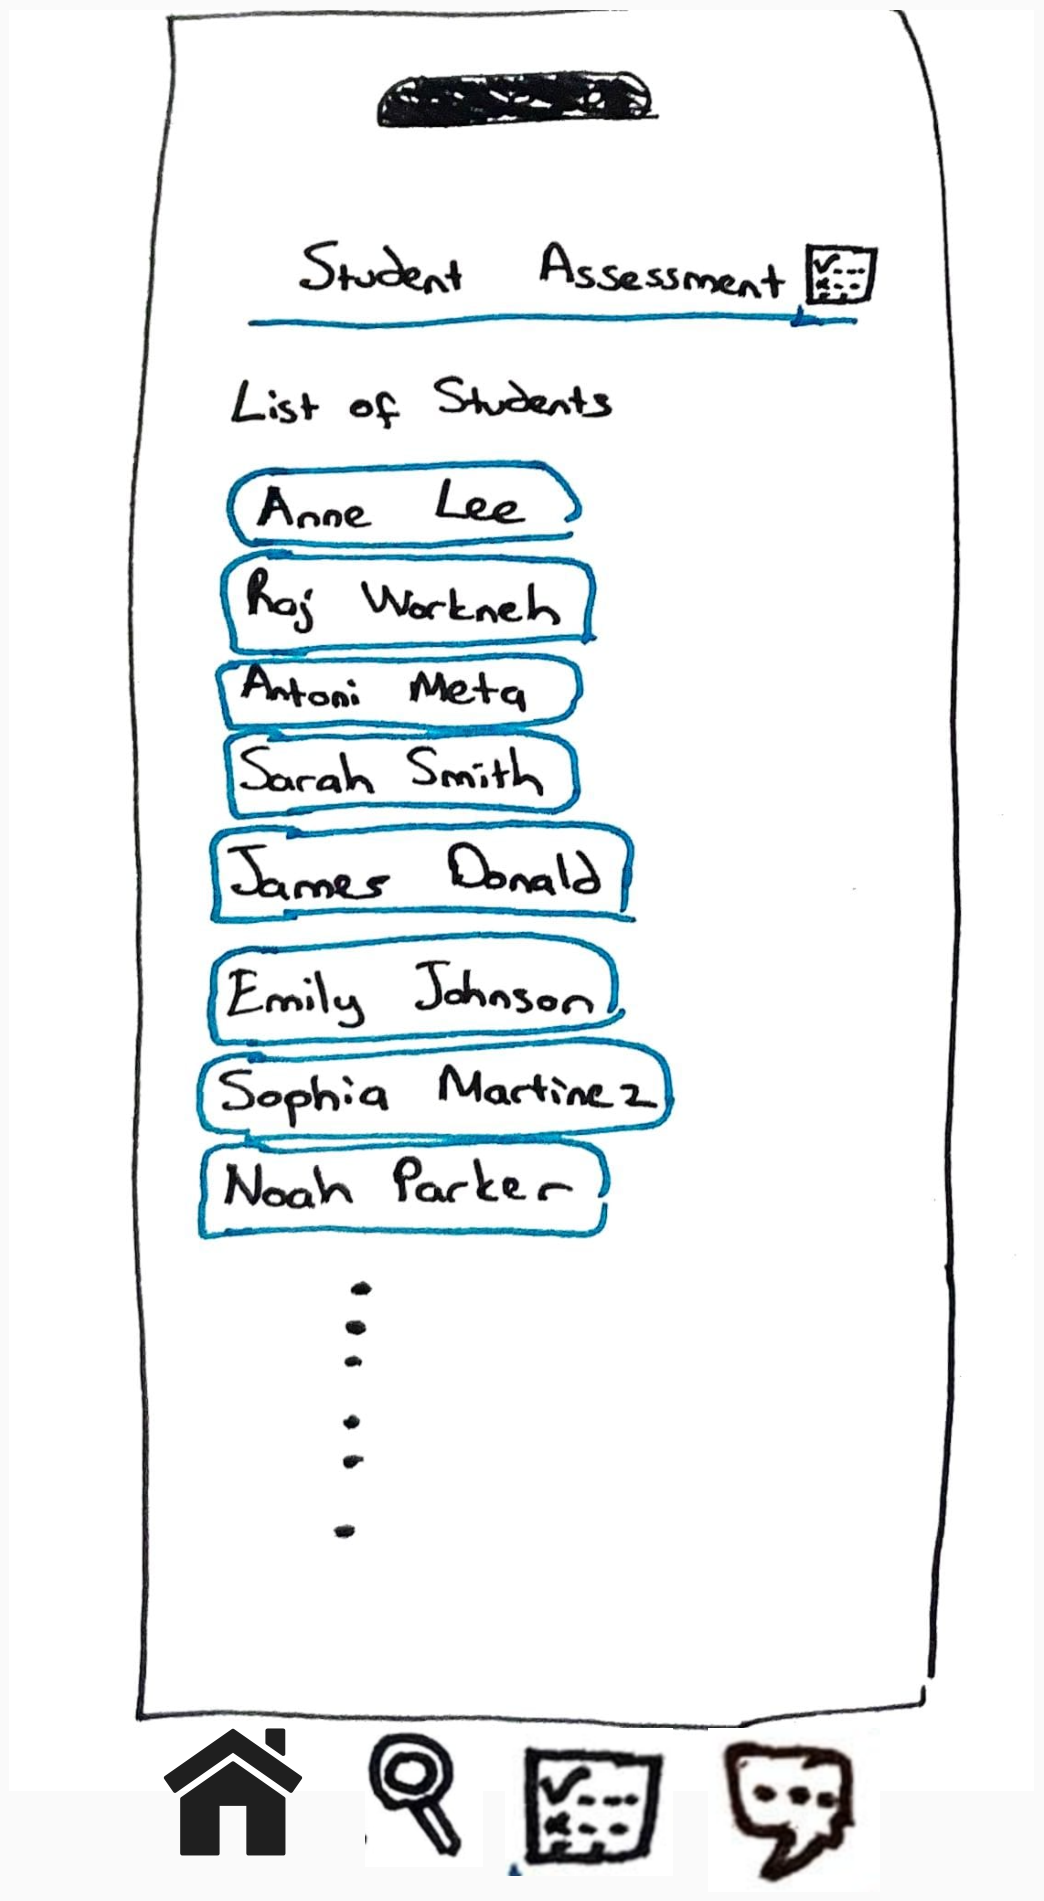 Student Assessment
List of Students
Anne Lee
Raj Workneh
Antoni Meta
Sarah Smith
James Donald
Emily Johnson
Sophia Martinez
Noah Parker